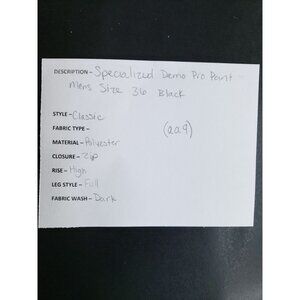 DESCRIPTION - Specialized Demo Pro Pant -
Mens Size 36 Black
STYLE - Classic
FABRIC TYPE -
(aa9)
MATERIAL - Polyester
CLOSURE - Zip
RISE - High
LEG STYLE - Full
FABRIC WASH - Dark